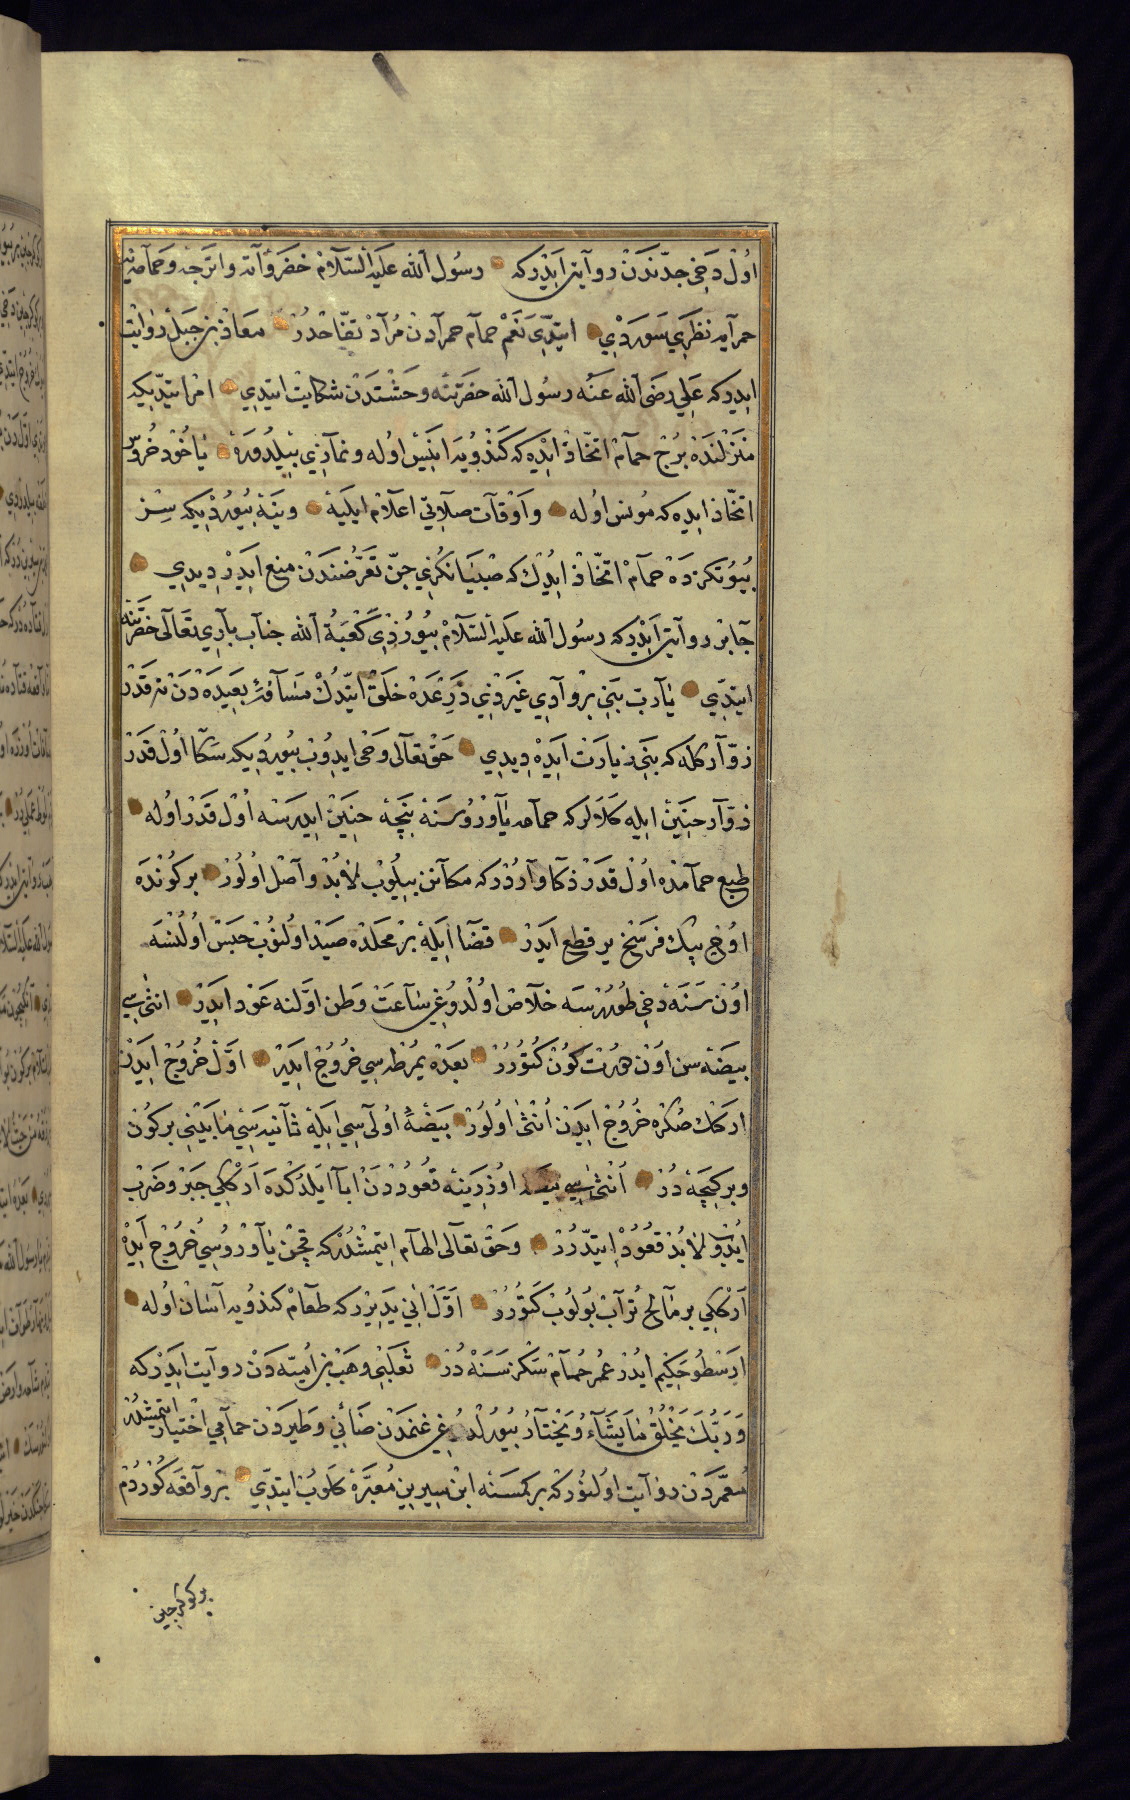 اول دخی جدّندن روایت ایدرکه رسول الله علیه السّلام خضروآته واترجه وحمامه‌ٔ
حمرایه نظری سوردی ایتدّی نعم حمام حمرادن مراد تفّاحدر معاذ بن جبل روایت
ایدرکه علی رضی الله عنه رسول الله حضرتنه وحشتدن شکایت ایتدی امر ایتدیکه
منزلنده برج حمام اتّخاذ ایده که کندویه انیس اوله ونمازی بیلدوره یاخود خروس
اتّخاذ ایده که مونس اوله واوقات صلاتی اعلام ایلیه وینه بیوردیکه سز
بیوتکزده حمام اتّخاذ ایدک که صبیانکزی جنّ تعرّضندن منع ایدر دیدی
جابر روایت ایدرکه رسول الله علیه السّلام بیوردی کعبة الله جناب باری تعالی حضرتنه
ایتدّی یا ربّ بنی بر وادی غیر ذی زرعده خلق ایتدک مسافهٔ بعیده دن نه قدر
زوّار کله که بنی زیارت ایده دیدی حق تعالی وحی ایدوب بیوردیکه سکا اول قدر
زوّار حنین ایله کلالر که حمامه یاوروسنه نیجه حنین ایدرسه اول قدر اوله
طبع حمامده اول قدر ذکا واردر که مکانن بیلوب لابد واصل اولور بر کونده
اوچ بیک فرسخ یر قطع ایدر قضا ایله بر محلده صید اولنوب حبس اولنسه
اون سنه دخی طورسه خلاص اولدوغی ساعت وطن اوّلنه عود ایدر انثیسی
بیضه سن اون درت کون کتورر بعده یمرطه سی خروج ایدر اوّل خروج ایدن
ارکک صکره خروج ایدن انثی اولور بیضهٔ اولاسی ایله ثانیه سی مابینی بر کون
وبر کیجه در انثیسی بیضه اوزرینه قعوددن ابا ایلدکده ارککی جبر وضرب
ایدوب لابد قعود ایتدّرر وحق تعالی الهام ایتمشدر که قچن یاوروسی خروج ایده
ارککی بر مالح تراب بولوب کتورر اوّل انی یدیرر که طعام کندویه آسان اوله
ارسطو حکیم ایدر عمر حمام سکز سنه در ثعلبی وهب بن امیه دن روایت ایدر که
وربّک یخلق ما یشاء ویختار بیورلدوغی غنمدن ضائنی وطیردن حمامی اختیار ایتمشدر
معمّردن روایت اولنور که بر کمسنه ابن سیرین معبّره کلوب ایتدّی بر واقعه کوردم
بر کوکرجین